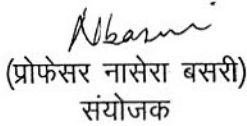 (प्रोफेसर नासेरा बसरी)
संयोजक